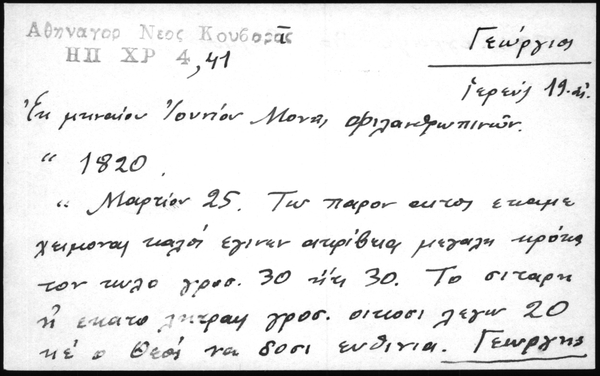 Αθηναγορ Νεος Κουβαρᾶς
ΗΠ ΧΡ 4, 41
Γεώργιος
ἱερεύς 19. αἰ.
Ἐκ μηναίου Ἰουνίου Μονῆς Φιλανθρωπινῶν.
" 1820.
" Μαρτίου 25. Τω παρον ετος εκαμε
χειμονας καλός έγινεν ακρίβεια μεγαλη
τον κιλο γροσ. 30 ήτι 30. Το σιταρη
ἡ εκατο λητραις γροσ. οικοσι λεγω 20
κέ ο Θεός να δοσι ευθινια. Γεωργης